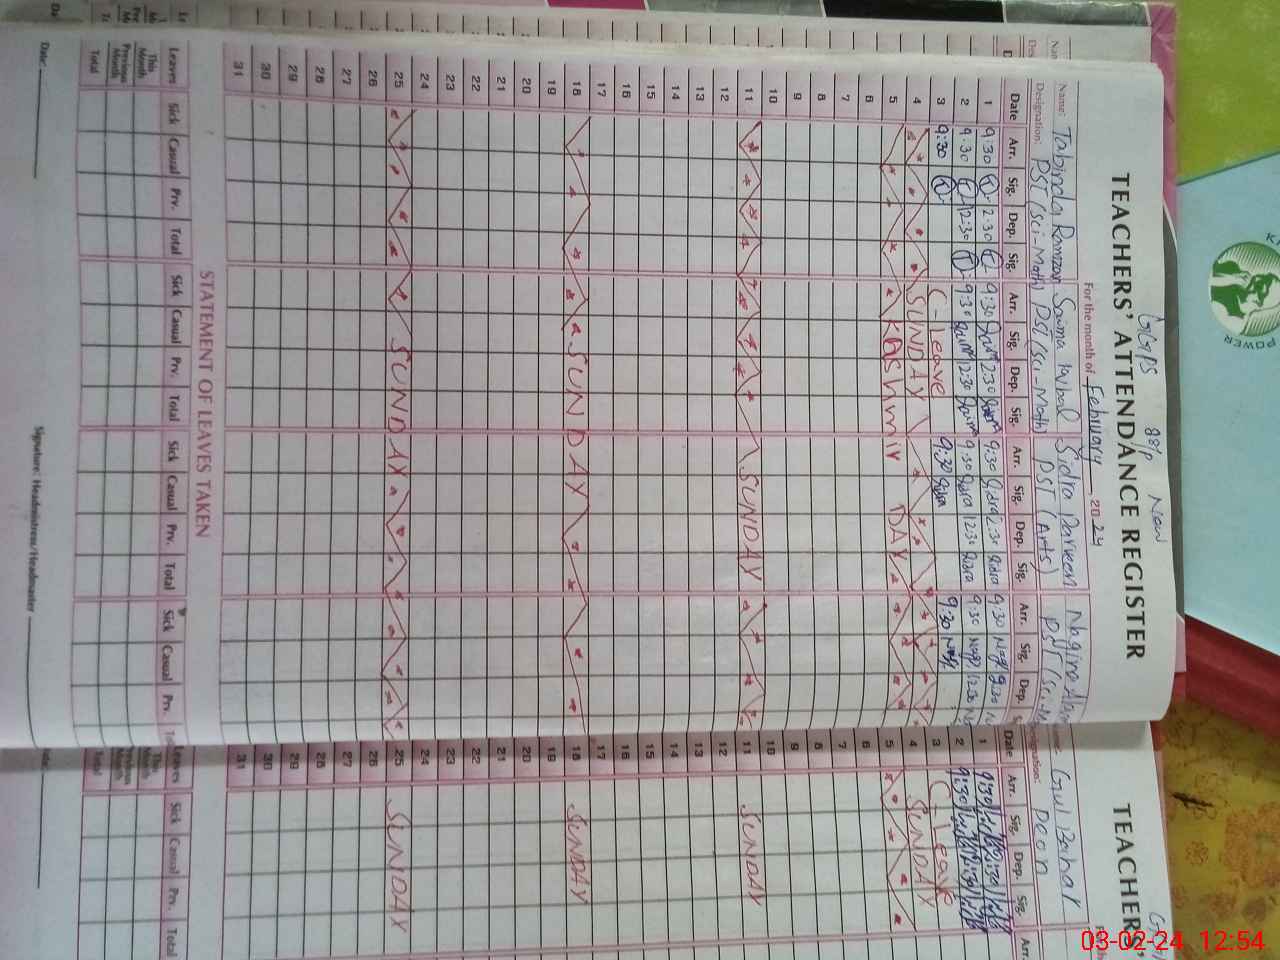 GGPS 88/P New
TEACHERS' ATTENDANCE REGISTER
For the month of February, 2024
Name: Tabinda Ramzan Saima Iqbal Sidra Parveen Nagina
Designation: PST (Sci-Math) PST (Sci-Math) PST (Arts) PST (Sci-M
Date Arr. Sig. Dep. Sig. Arr. Sig. Dep. Sig. Arr. Sig. Dep. Sig. Arr. Sig. Dep. S
1 9:30 2:30 9:30 2:30 9:30 Sidra 2:30 Sidra 9:30
2 9:30 12:30 9:30 12:30 9:30 Sidra 12:30 Sidra 9:30 12:30
3 9:30 C-Leave 9:30 Sidra 9:30
4 SUNDAY
5 Kashmir DAY
6
7
8
9
10
11 SUNDAY
12
13
14
15
16
17
18 SUNDAY
19
20
21
22
23
24
25 SUNDAY
26
27
28
29
30
31
STATEMENT OF LEAVES TAKEN
Leaves Sick Casual Prv. Total Sick Casual Prv. Total Sick Casual Prv. Total Sick Casual Prv.
This Month
Previous Month
Total
Date: Signature: Headmistress/Headmaster
TEACHERS'
Gul Bahar
Designation: Peon
Date Arr. Sig. Dep. Sig. Arr.
1 9:30
2 9:30
3 C-Leave
4 SUNDAY
5
6
7
8
9
10
11 SUNDAY
12
13
14
15
16
17
18 SUNDAY
19
20
21
22
23
24
25 SUNDAY
26
27
28
29
30
31
Leaves Sick Casual Prv. Total
This Month
Previous Month
Total
POWER
03-02-24 12:54